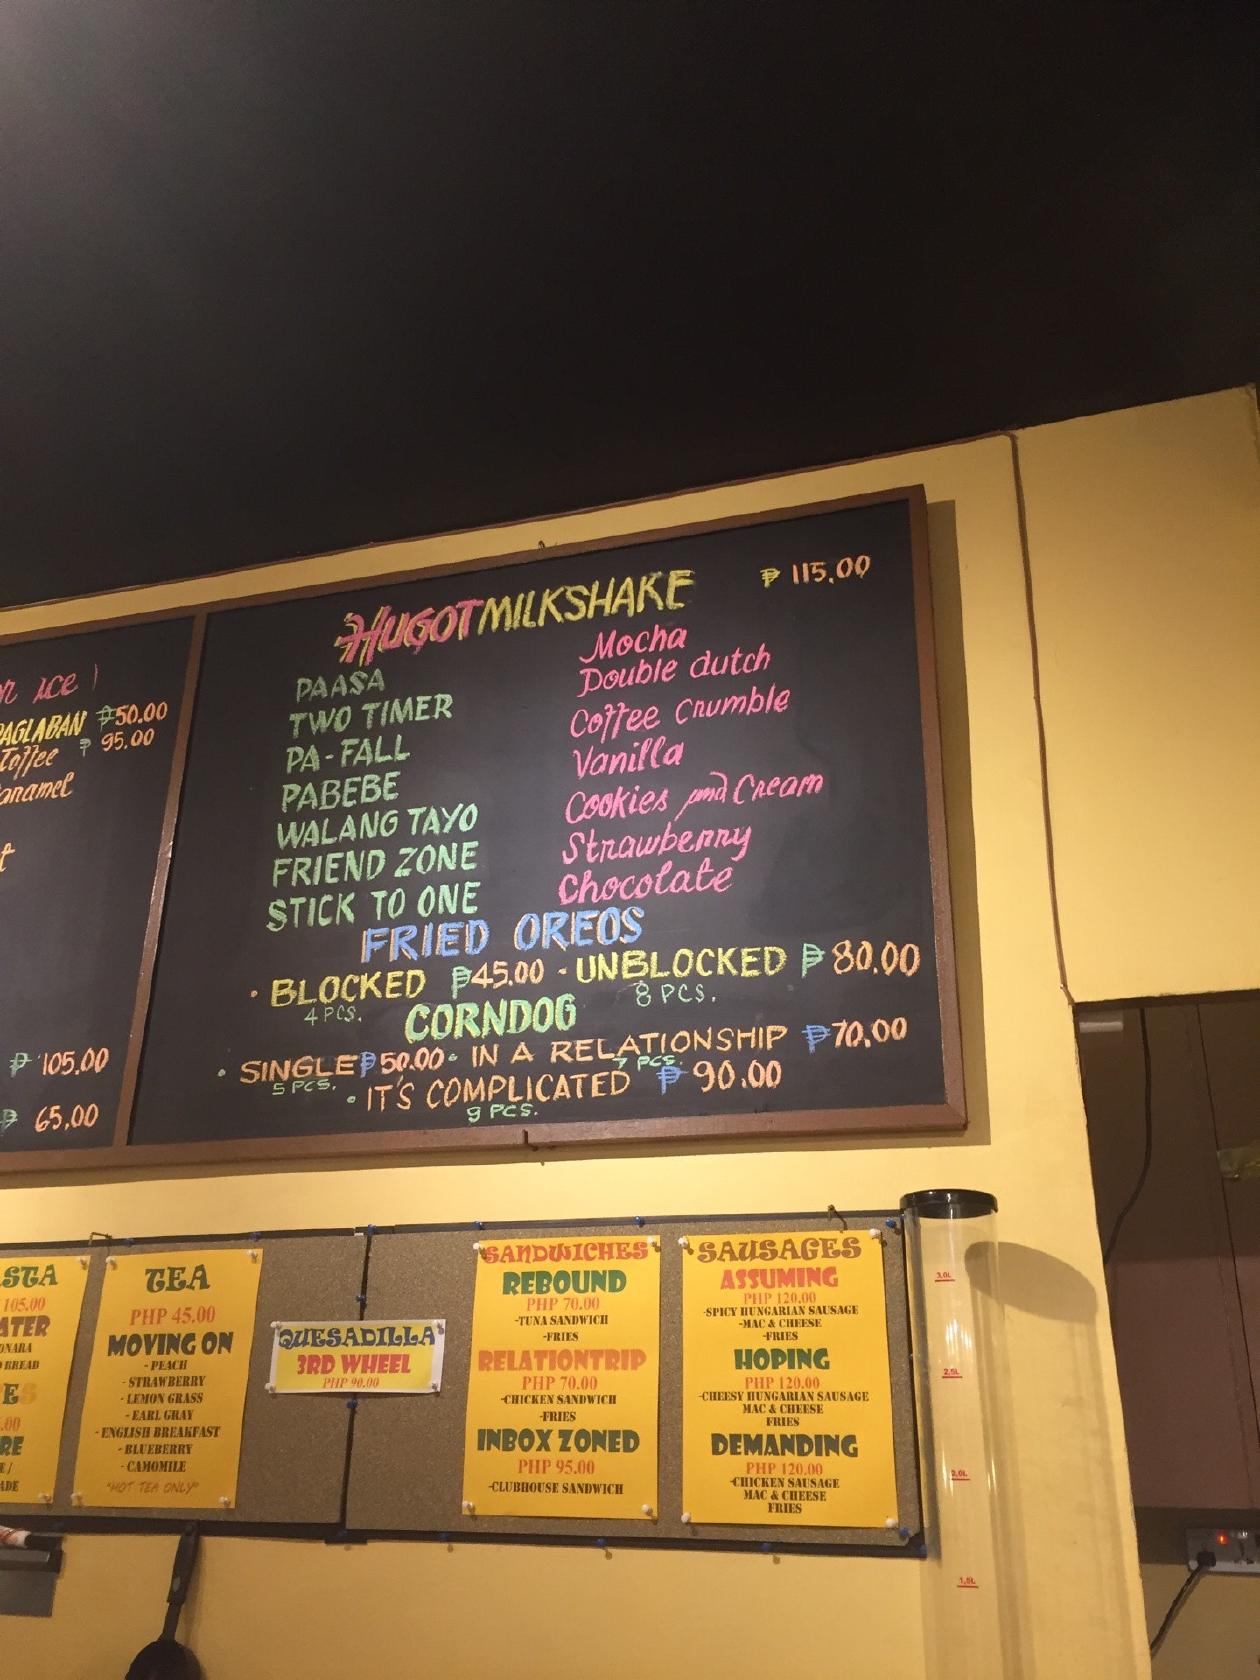 or ice )
PAGLABAN ₱50.00
Toffee ₱ 95.00
Caramel
₱ 105.00
₱ 65.00
HUGOT MILKSHAKE ₱ 115.00
PAASA Mocha
TWO TIMER Double dutch
PA-FALL Coffee Crumble
PABEBE Vanilla
WALANG TAYO Cookies and Cream
FRIEND ZONE Strawberry
STICK TO ONE Chocolate
FRIED OREOS
• BLOCKED ₱45.00 - UNBLOCKED ₱ 80.00
4 PCS. 8 PCS.
CORNDOG
• SINGLE ₱50.00 • IN A RELATIONSHIP ₱70.00
5 PCS. 7 PCS.
• IT'S COMPLICATED ₱ 90.00
9 PCS.
105.00
D BREAD
TEA
PHP 45.00
MOVING ON
- PEACH
- STRAWBERRY
- LEMON GRASS
- EARL GRAY
- ENGLISH BREAKFAST
- BLUEBERRY
- CAMOMILE
"HOT TEA ONLY"
QUESADILLA
3RD WHEEL
PHP 90.00
SANDWICHES
REBOUND
PHP 70.00
-TUNA SANDWICH
-FRIES
RELATIONTRIP
PHP 70.00
-CHICKEN SANDWICH
-FRIES
INBOX ZONED
PHP 95.00
-CLUBHOUSE SANDWICH
SAUSAGES
ASSUMING
PHP 120.00
-SPICY HUNGARIAN SAUSAGE
-MAC & CHEESE
-FRIES
HOPING
PHP 120.00
-CHEESY HUNGARIAN SAUSAGE
MAC & CHEESE
FRIES
DEMANDING
PHP 120.00
-CHICKEN SAUSAGE
MAC & CHEESE
FRIES
3,0L
2,5L
2,0L
1,5L